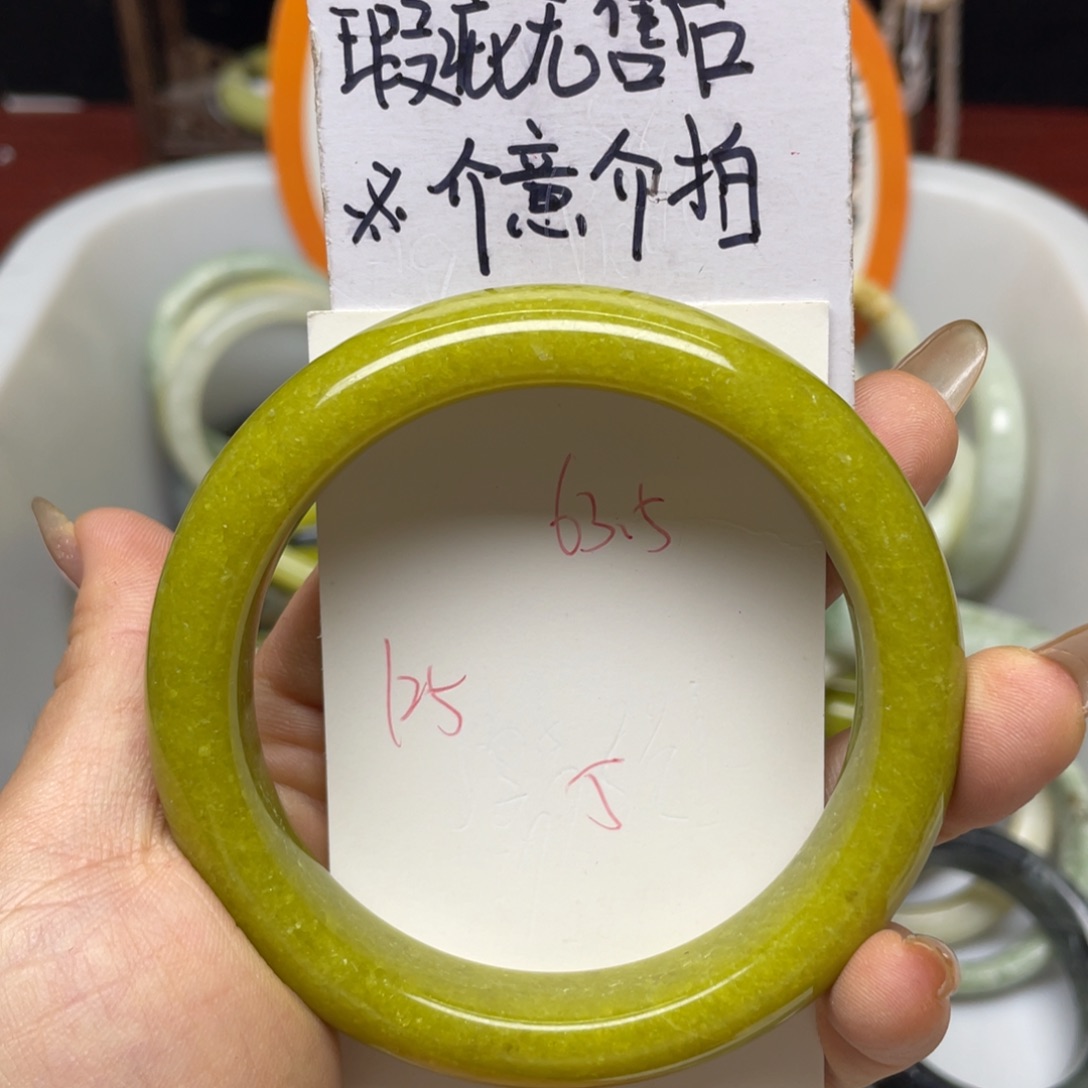 瑕疵无售后
※介意介拍
63.5
125
J